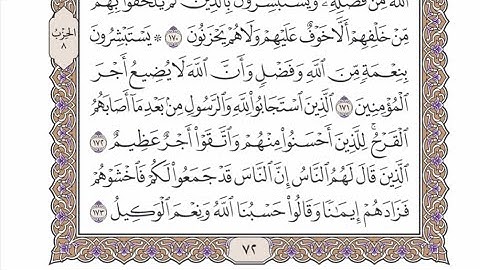 اللَّهُ مِن فَضْلِهِۦ وَيَسْتَبْشِرُونَ بِالَّذِينَ لَمْ يَلْحَقُوا۟ بِهِم
مِّنْ خَلْفِهِمْ أَلَّا خَوْفٌ عَلَيْهِمْ وَلَا هُمْ يَحْزَنُونَ ١٧٠ ۞ يَسْتَبْشِرُونَ
بِنِعْمَةٍ مِّنَ اللَّهِ وَفَضْلٍ وَأَنَّ اللَّهَ لَا يُضِيعُ أَجْرَ
الْمُؤْمِنِينَ ١٧١ الَّذِينَ اسْتَجَابُوا۟ لِلَّهِ وَالرَّسُولِ مِنۢ بَعْدِ مَآ أَصَابَهُمُ
الْقَرْحُ ۚ لِلَّذِينَ أَحْسَنُوا۟ مِنْهُمْ وَاتَّقَوْا۟ أَجْرٌ عَظِيمٌ ١٧٢
الَّذِينَ قَالَ لَهُمُ النَّاسُ إِنَّ النَّاسَ قَدْ جَمَعُوا۟ لَكُمْ فَاخْشَوْهُمْ
فَزَادَهُمْ إِيمَـٰنًا وَقَالُوا۟ حَسْبُنَا اللَّهُ وَنِعْمَ الْوَكِيلُ ١٧٣
الحِزْبُ
٨
٧٢